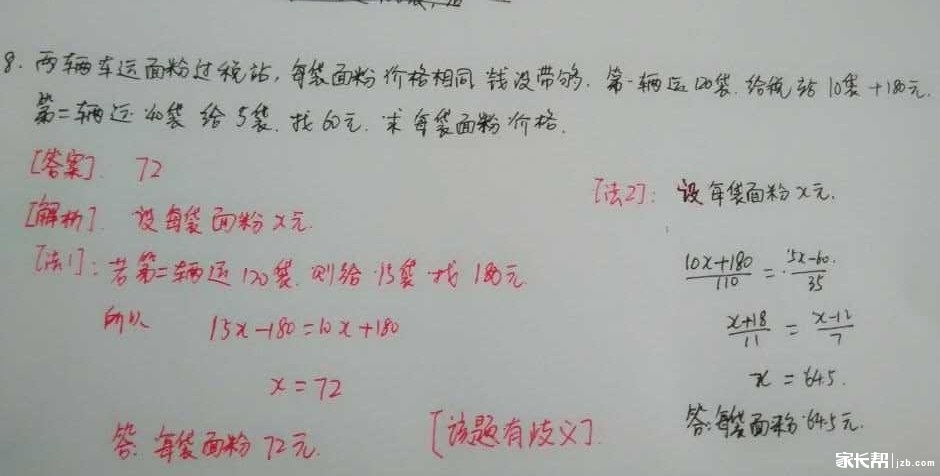 8. 两辆车运面粉过税站,每袋面粉价格相同 钱没带够. 第一辆运120袋. 给税站10袋+180元.
第二辆运40袋 给5袋. 找60元. 求每袋面粉价格.
[答案]. 72
[解析]. 设每袋面粉x元.
[法1]: 若第二辆运120袋. 则给15袋 找180元.
所以 15x-180=10x+180
x=72
答: 每袋面粉72元.
[该题有歧义].
[法2]: 设每袋面粉x元.
10x+180/110 = 5x-60/35
x+18/11 = x-12/7
x = 64.5.
答:每袋面粉64.5元.
家长帮 jzb.com